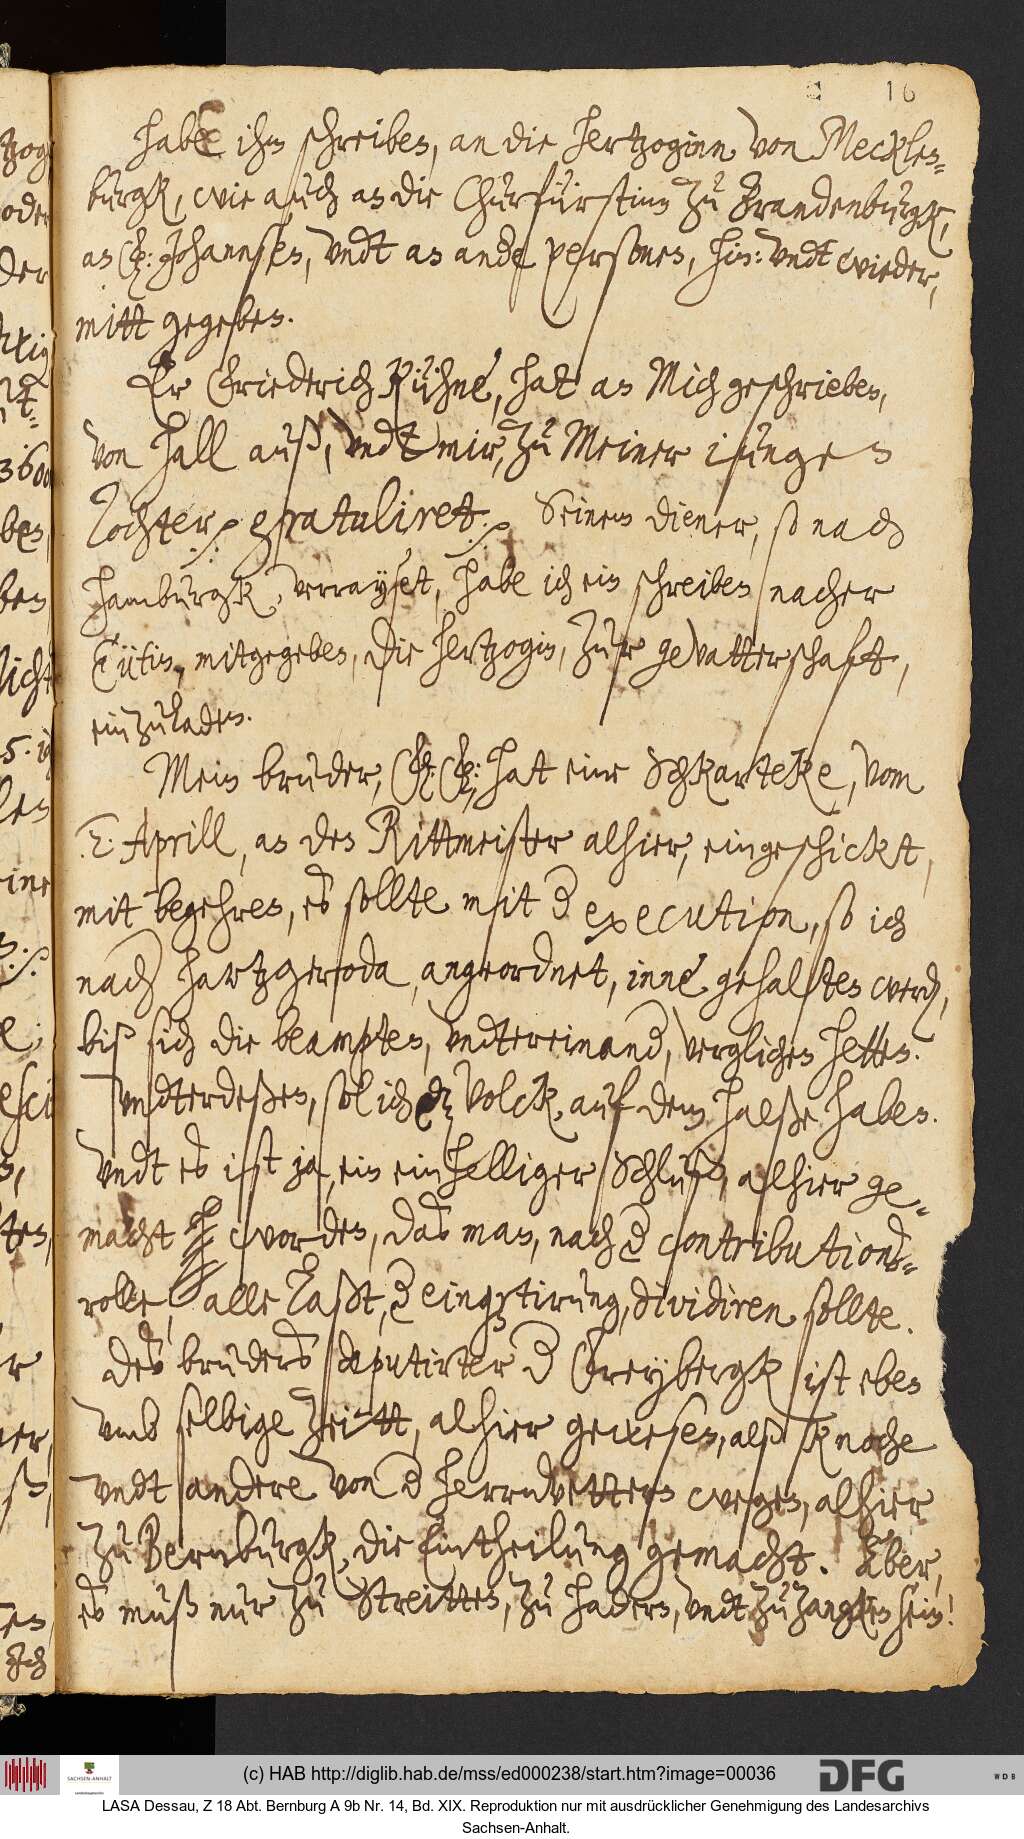 16
habe ihm schreiben, an die Hertzoginn von Meckeln-
burgk, wie auch an die Churfürstinn zu Brandenburgk,
an E: Johannsen, vndt an ande personen, hin: vndt wieder,
mitt gegeben.
Er Christoff Friederich Kühne, hat an Mich geschrieben,
von Hall auß, vndt mir, zu Meiner iungen
Tochter ./. gratuliret ./. Seinem diener, so nach
Hamburgk, verrayset, habe ich ein schreiben nacher
Eütin, mitgegeben, die Hertzogin, zur gevatterschaft,
einzuladen.
Mein bruder, hat eine Schkarteke, vom
2: Aprill, an den Rittmeister alhier, eingeschickt,
mit begehren, es sollte mit d execution, so ich
nach Hartzgeroda, angeordnet, inne gehalten werd,
biß sich die beampten, vndtereinand, verglichen hetten.
Vndterdeßen, sol ich dz volck, auf dem halse haben.
Vndt es ist ja, ein einhelliger Schluß, alhier ge-
macht worden, das man, nach d contributions-
rolle, alle Last, d einqrtirung, dividiren sollte.
Des bruders deputirter d Freybergk ist eben
vmb selbige Zeitt, alhier gewesen, alß Knoche
vndt andere von d herrnvettern wegen, alhier
zu Bernburgk, die Eintheilung gemacht. Aber,
es muß nur zu Streitten, zu hadern, vndt zu zancken sein!
(c) HAB http://diglib.hab.de/mss/ed000238/start.htm?image=00036
SACHSEN-ANHALT
DFG
WDB
LASA Dessau, Z 18 Abt. Bernburg A 9b Nr. 14, Bd. XIX. Reproduktion nur mit ausdrücklicher Genehmigung des Landesarchivs
Sachsen-Anhalt.